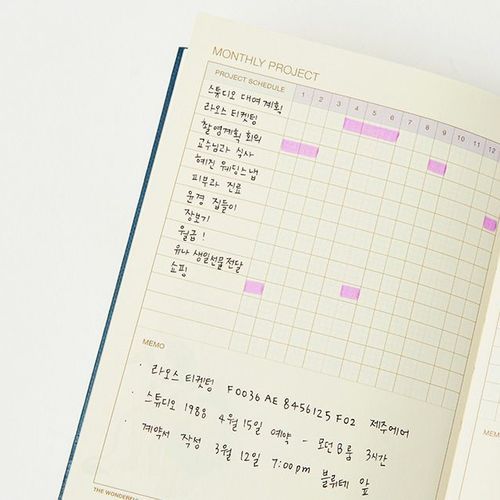 MONTHLY PROJECT
PROJECT SCHEDULE 1 2 3 4 5 6 7 8 9 10 11 12
스튜디오 대여 계획
라오스 티켓팅
촬영계획 회의
교수님과 식사
혜진 웨딩스냅
피부과 진료
윤경 집들이
장보기
월급!
유나 생일선물 전달
쇼핑
MEMO
· 라오스 티켓팅 F0036AE8456125F02 제주에어
· 스튜디오 1988 4월 15일 예약 - 모던B룸 3시간
· 계약서 작성 3월 12일 7:00pm 블루테 앞
THE WONDERFUL